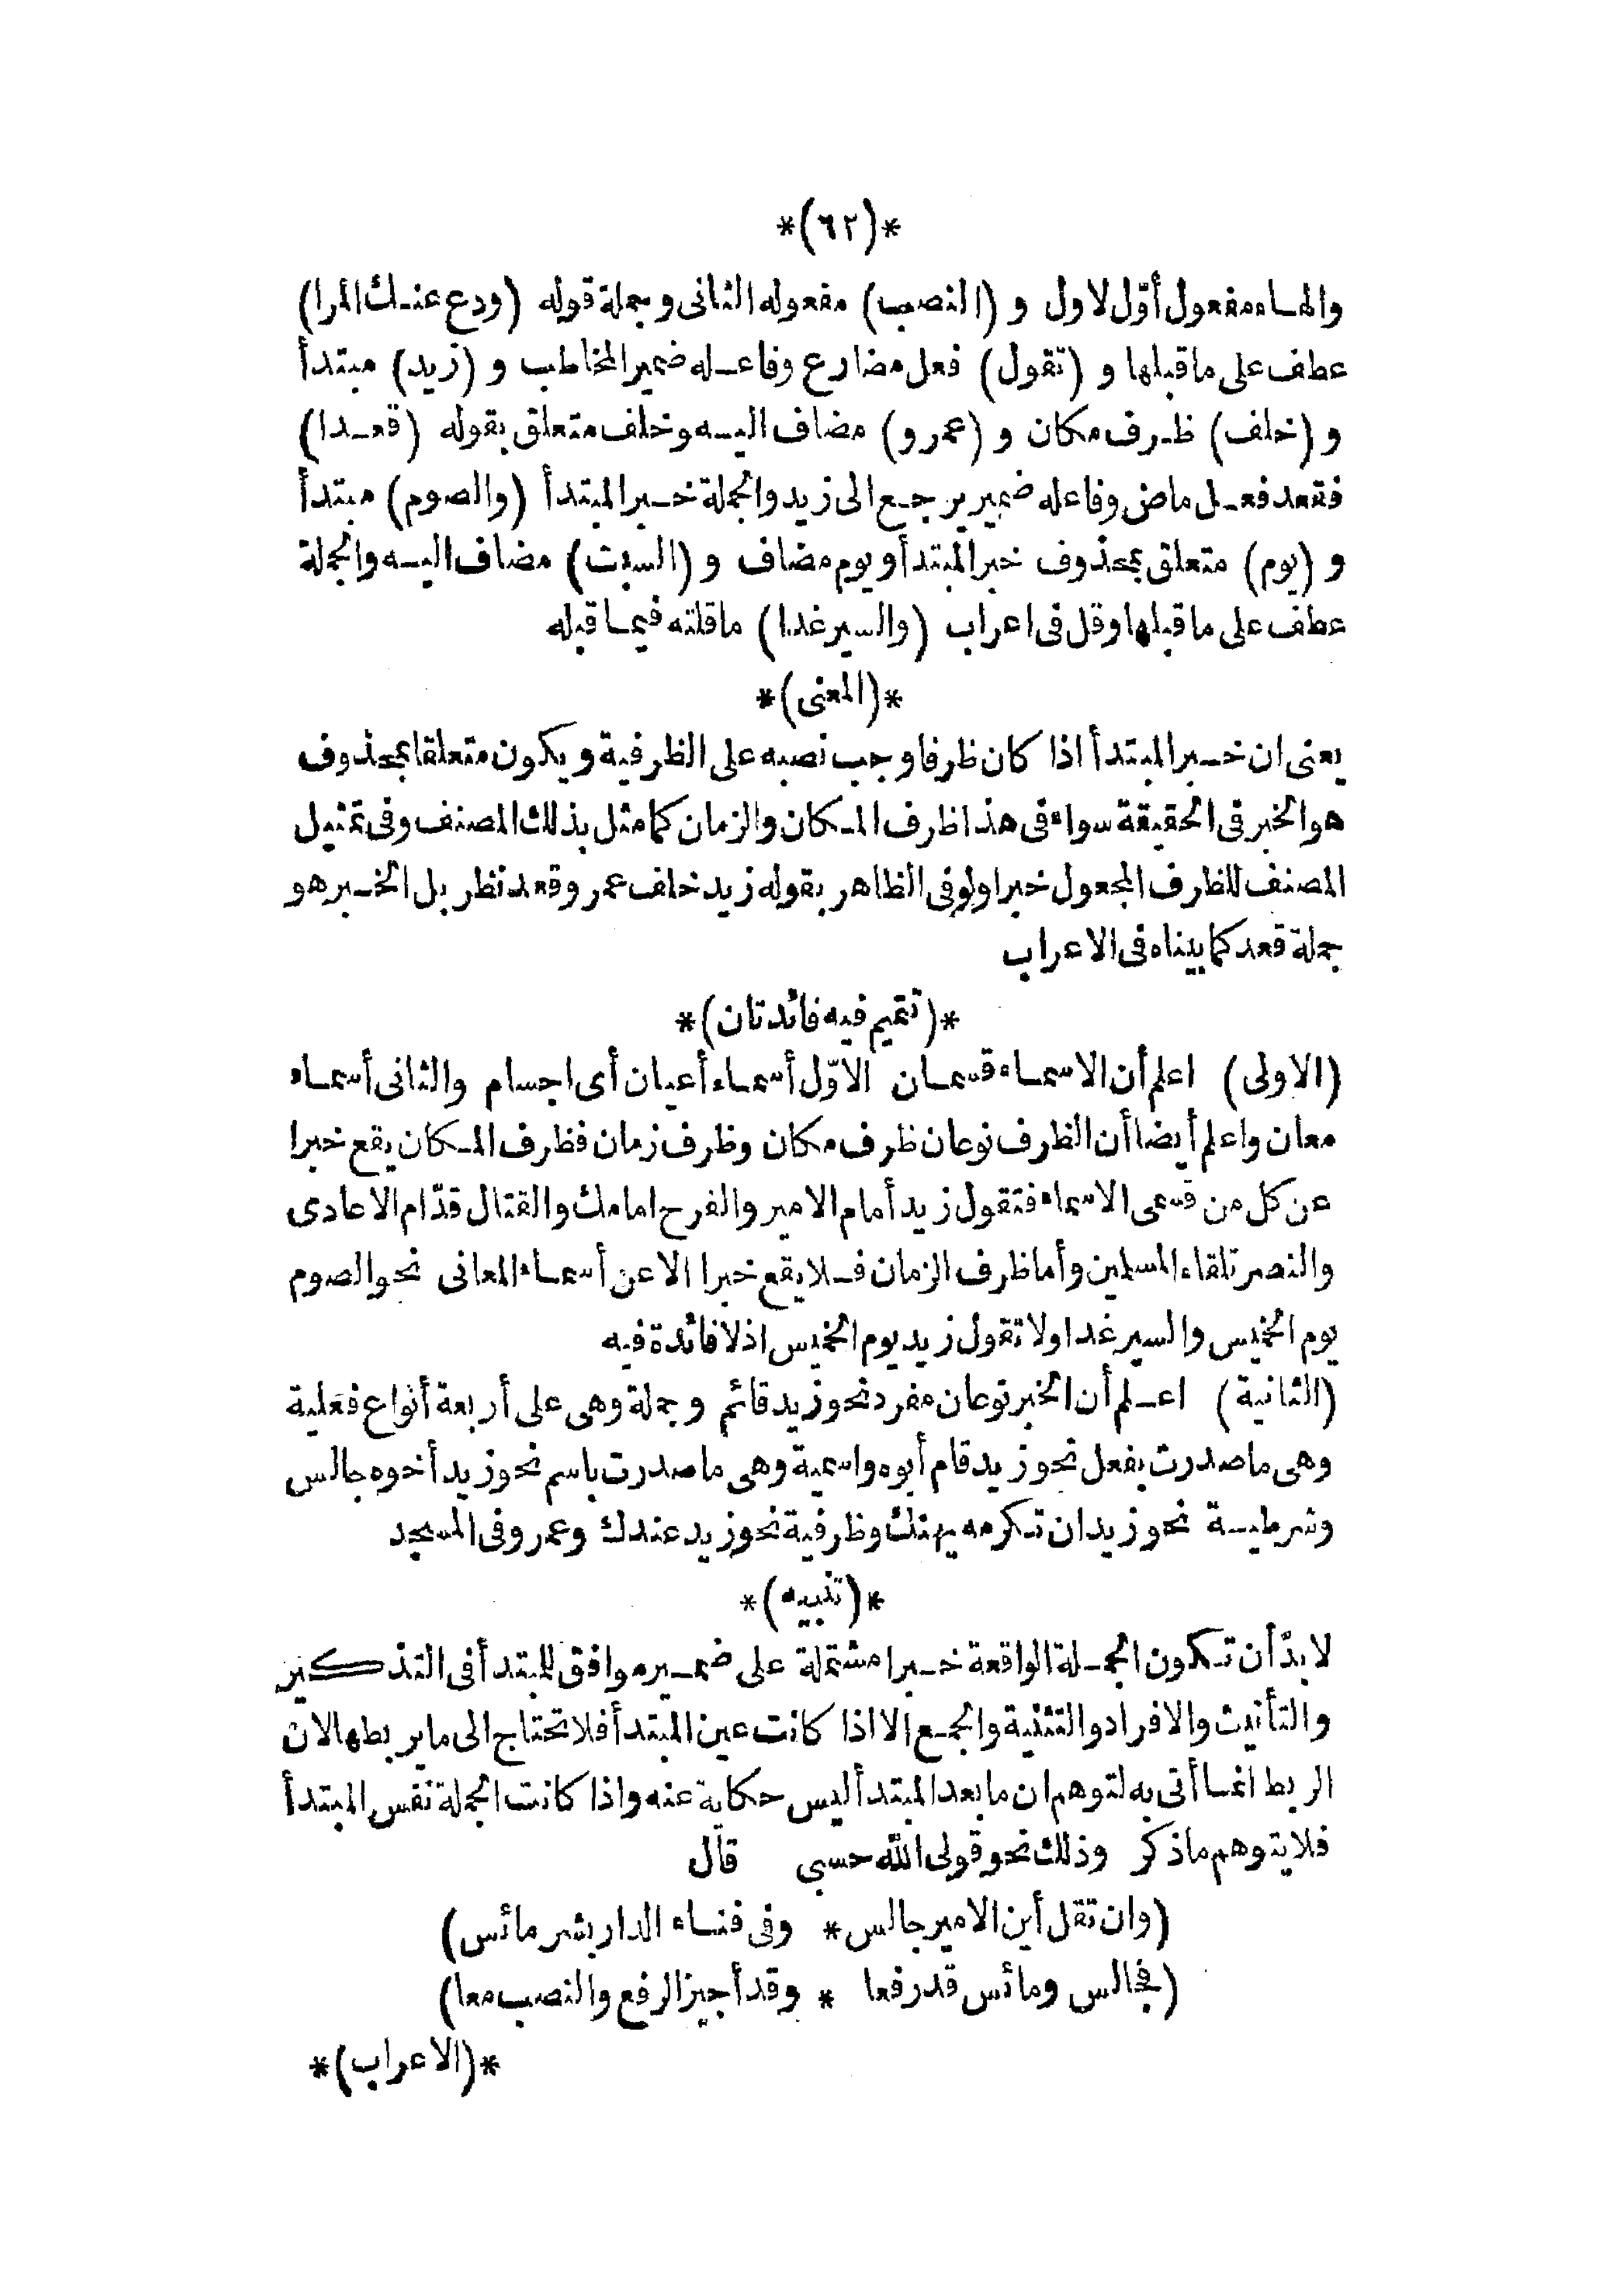 *(٦٢)*
والهاء مفعول أوّل لاول و (النصب) مفعوله الثانى وجملة قوله (ودع عنك المرا)
عطف على ما قبلها و (تقول) فعل مضارع وفاعله ضمير المخاطب و (زيد) مبتدأ
و (خلف) ظرف مكان و (عمرو) مضاف اليه وخلف متعلق بقوله (قعدا)
فقعد فعل ماض وفاعله ضمير يرجع الى زيد والجملة خبر المبتدأ (والصوم) مبتدأ
و (يوم) متعلق بمحذوف خبر المبتدأ ويوم مضاف و (السبت) مضاف اليه والجملة
عطف على ما قبلها وقل فى اعراب (والسير غدا) ما قلته فيما قبله
*(المعنى)*
يعنى ان خبر المبتدأ اذا كان ظرفا وجب نصبه على الظرفية ويكون متعلقا بمحذوف
هو الخبر فى الحقيقة سواء فى هذا ظرف المكان والزمان كما مثل بذلك المصنف وفى تمثيل
المصنف للظرف المجعول خبرا ولو فى الظاهر بقوله زيد خلف عمر وقعد نظر بل الخبر هو
جملة قعد كما بيناه فى الاعراب
*(تتميم فيه فائدتان)*
(الاولى) اعلم أن الاسماء قسمان الاوّل أسماء أعيان أى اجسام والثانى أسماء
معان واعلم أيضا أن الظرف نوعان ظرف مكان وظرف زمان فظرف المكان يقع خبرا
عن كل من قسمى الاسماء فتقول زيد أمام الامير والفرح امامك والقتال قدّام الاعادى
والنصر تلقاء المسلمين وأما ظرف الزمان فلا يقع خبرا الا عن أسماء المعانى نحو الصوم
يوم الخميس والسير غدا ولا تقول زيد يوم الخميس اذلا فائدة فيه
(الثانية) اعلم أن الخبر نوعان مفرد نحو زيد قائم وجملة وهى على أربعة أنواع فعلية
وهى ما صدرت بفعل نحو زيد قام أبوه واسمية وهى ما صدرت باسم نحو زيد أخوه جالس
وشرطية نحو زيد ان تكرمه يهنك وظرفية نحو زيد عندك وعمرو فى المسجد
*(تنبيه)*
لا بدّ أن تكون الجملة الواقعة خبرا مشتملة على ضمير موافق للمبتدأ فى التذكير
والتأنيث والافراد والتثنية والجمع الا اذا كانت عين المبتدأ فلا تحتاج الى ما يربطها لان
الربط انما أتى به لتوهم ان ما بعد المبتدأ ليس حكاية عنه واذا كانت الجملة نفس المبتدأ
فلا يتوهم ما ذكر وذلك نحو قولى الله حسبى قال
(وان تقل أين الامير جالس * وفى فناء الدار بشر مائس)
(فجالس ومائس قد رفعا * وقد أجيز الرفع والنصب معا)
*(الاعراب)*